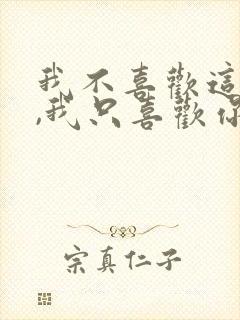 我不喜歡這
,我只喜歡你
宗真仁子